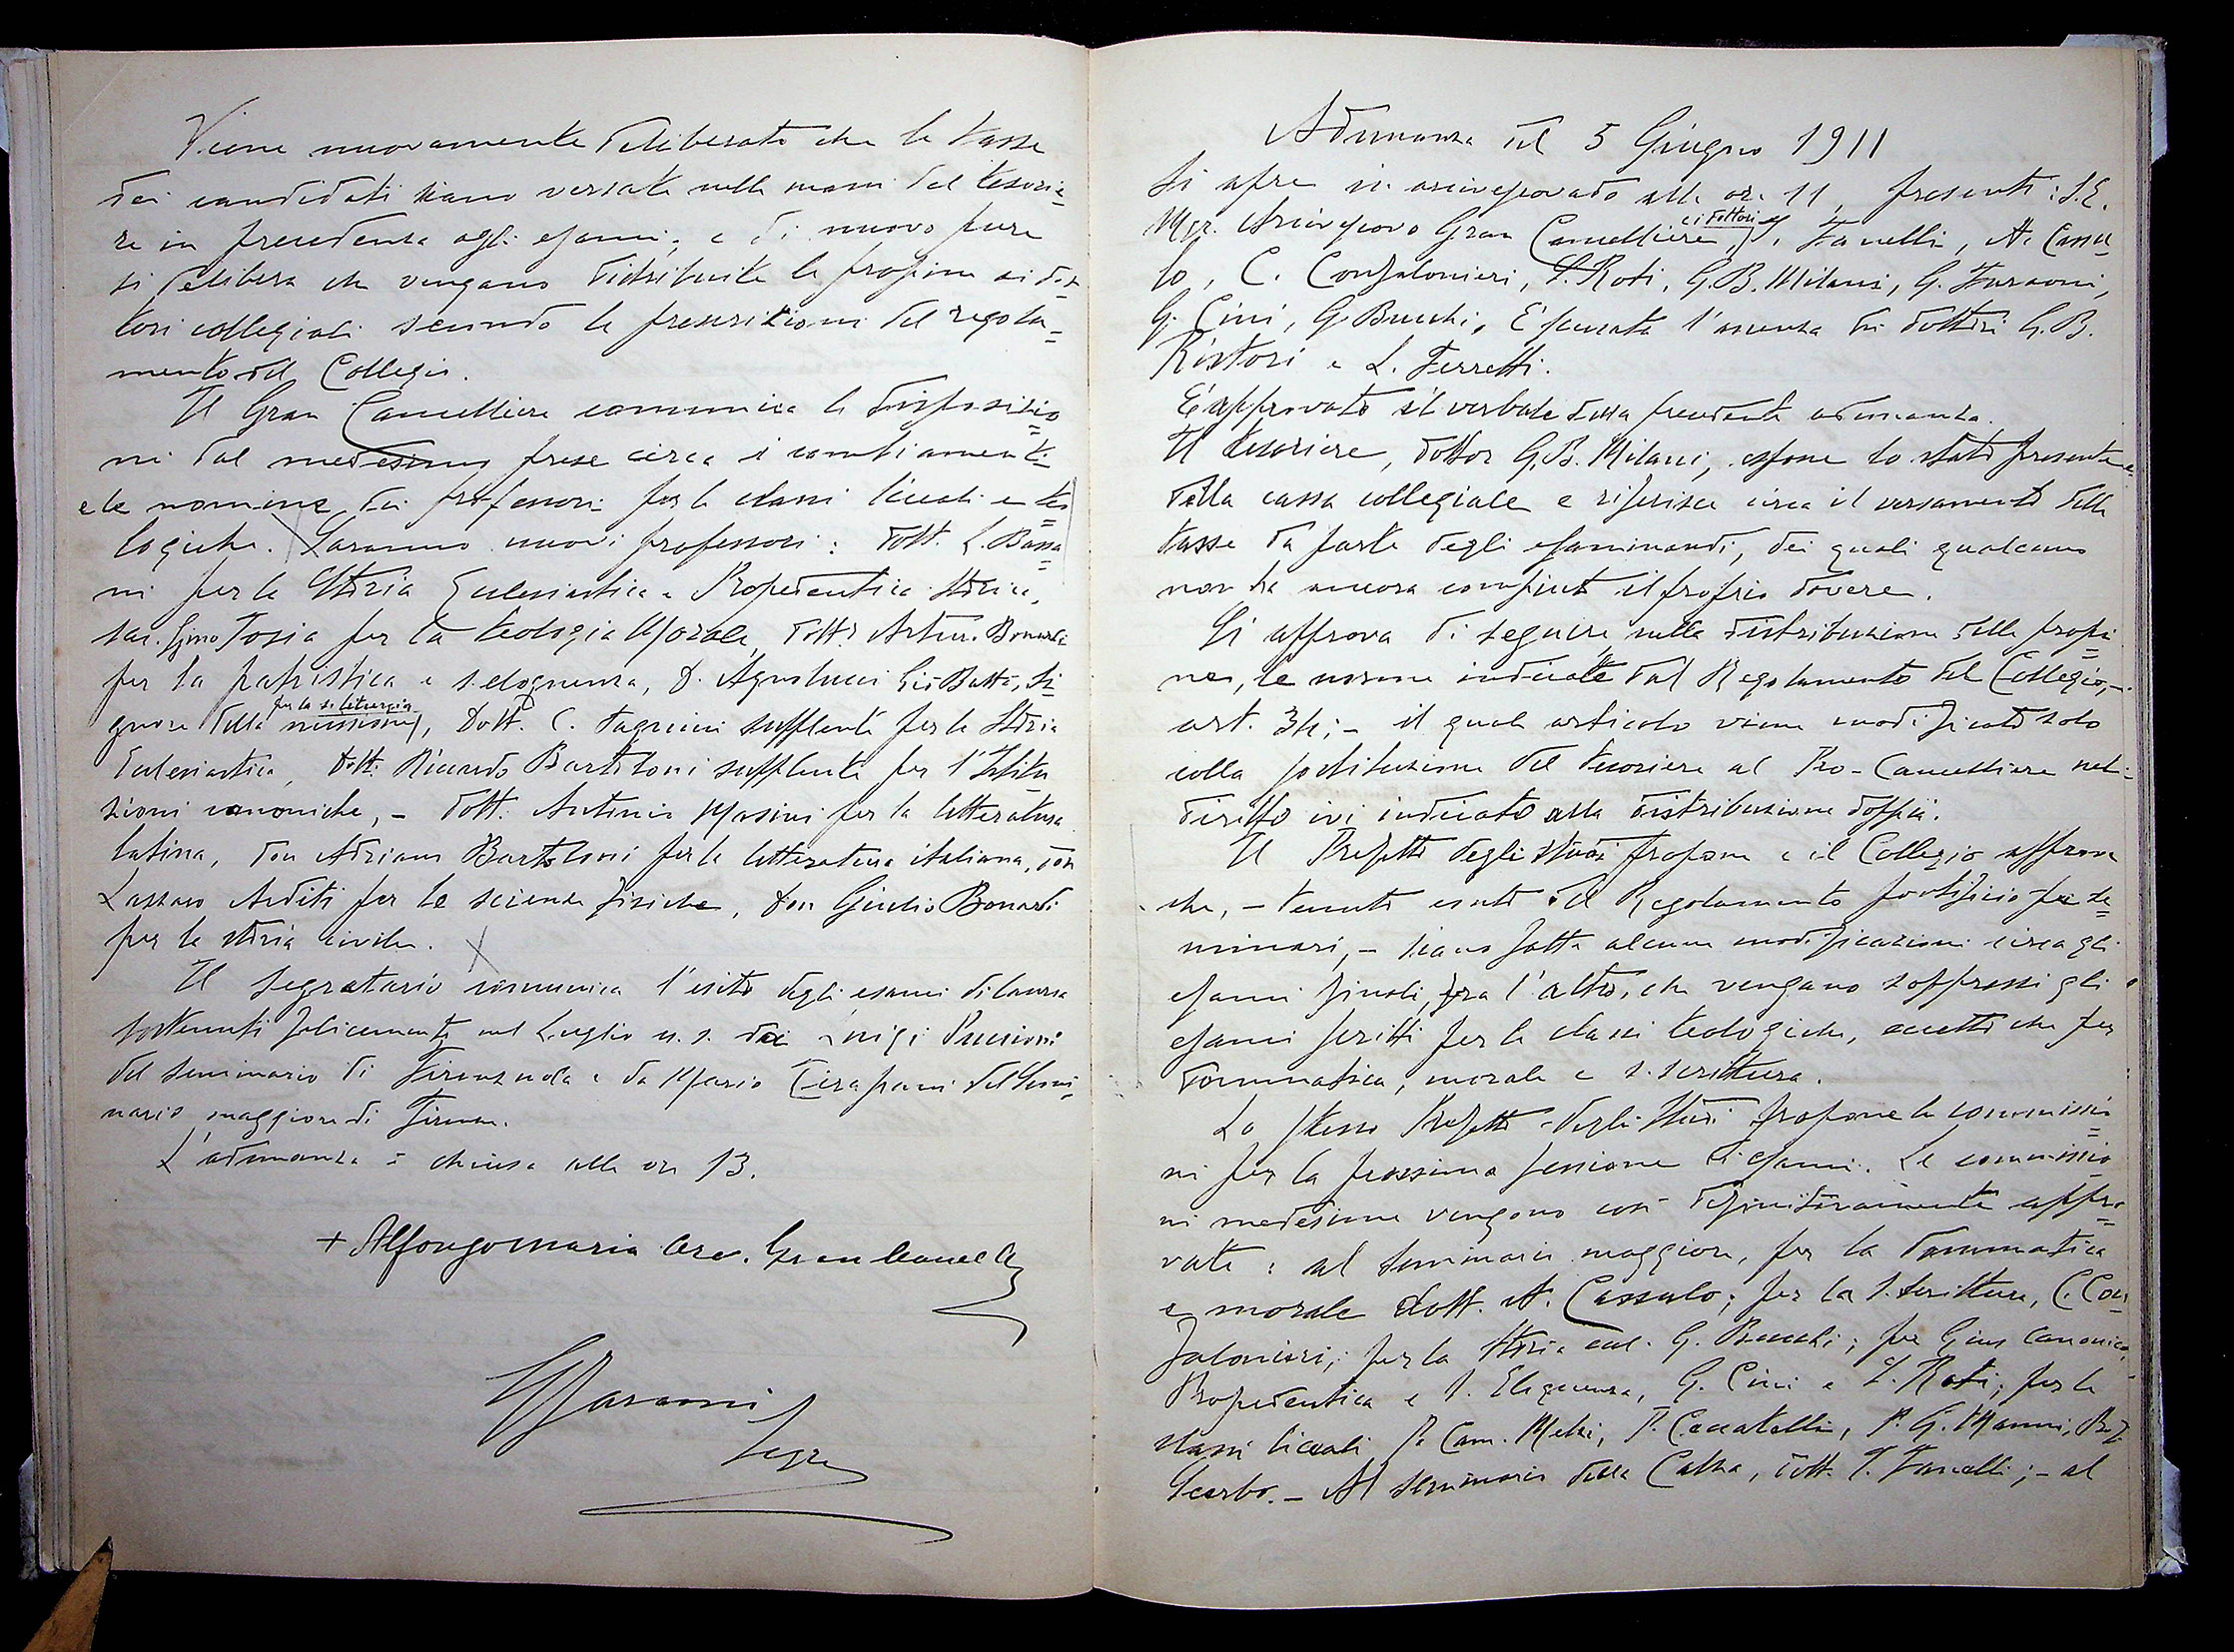 Viene nuovamente deliberato che le tasse
dei candidati siano versate nelle mani del tesorie=
re in precedenza agli esami; e di nuovo pure
si delibera che vengano distribuite le propine ai dot=
tori collegiali secondo le prescrizioni del regola=
mento del Collegio.
Il Gran Cancelliere comunica le disposizio=
ni dal medesimo prese circa i cambiamenti
e le nomine dei professori per le classi liceali e teo=
logiche. Saranno nuovi professori: dott. L. Bassa=
ni per la Storia Ecclesiastica e Propedeutica storica,
sac. Gino Tosia per la teologia Morale, dott. Artur. Bonardi
per la patristica e s. eloquenza, D. Agnolucci Gio Batta, Si=
per la s. liturgia
gnore della missione, Dott. C. Tagnini supplente per la Storia
Ecclesiastica, dott. Riccardo Bartoloni supplente per l'Istitu
zioni canoniche, - dott. Antonio Masini per la letteratura
latina, don Adriano Bartoloni per la letteratura italiana, don
Lazzaro Arditi per le scienze fisiche, don Giulio Bonardi
per la storia civile.
Il Segretario comunica l'esito degli esami di laurea
sostenuti felicemente nel Luglio u. s. da Luigi Puccioni
del Seminario di Firenzuola e da Mario Tirapani del Semi=
nario maggiore di Firenze.
L'adunanza è chiusa alle ore 13.
+ Alfonso Maria Arc. Gran Cancell.
Segr.
Adunanza del 5 Giugno 1911
Si apre in arcivescovado alle ore 11, presenti: S.E.
i dottori
Mgr. Arcivescovo Gran Cancelliere, T. Fanelli, A. Cassu
lo, C. Confalonieri, S. Roti, G.B. Milani, G. Faraoni,
G. Cini, G. Brucchi. È scusata l'assenza dei dottori G.B.
Ristori e L. Ferretti.
È approvato il verbale della precedente adunanza.
Il tesoriere, dottor G.B. Milani, espone lo stato presente
della cassa collegiale e riferisce circa il versamento delle
tasse da parte degli esaminandi, dei quali qualcuno
non ha ancora compiuto il proprio dovere.
Si approva di seguire, nella distribuzione delle propi=
ne, le norme indicate dal Regolamento del Collegio, -
art. 34; - il quale articolo viene modificato solo
colla sostituzione del tesoriere al Pro-Cancelliere nel
diritto ivi indicato alla distribuzione doppia.
Il Prefetto degli studi propone e il Collegio approva
che, - tenuto conto del Regolamento pontificio pei se=
minari, - siano fatte alcune modificazioni circa gli
esami finali, fra l'altro, che vengano soppressi gli
esami scritti per le classi teologiche, eccetto che per
dommatica, morale e s. scrittura.
Lo stesso Prefetto degli Studi propone le commissio=
ni per la prossima sessione di esami. Le commissio
ni medesime vengono così definitivamente appro=
vate: al Seminario maggiore, per la dommatica
e morale dott. A. Cassulo; per la S. Scrittura, C. Con=
falonieri; per la Storia eccl. G. Brucchi; per Gius Canonico,
Propedeutica e S. Eloquenza, G. Cini e S. Roti; per le
classi liceali P. Cam. Melzi, P. Ceccatelli, P. G. Manni, Prof.
Scerbo. - Al seminario della Calza, dott. T. Fanelli; - al